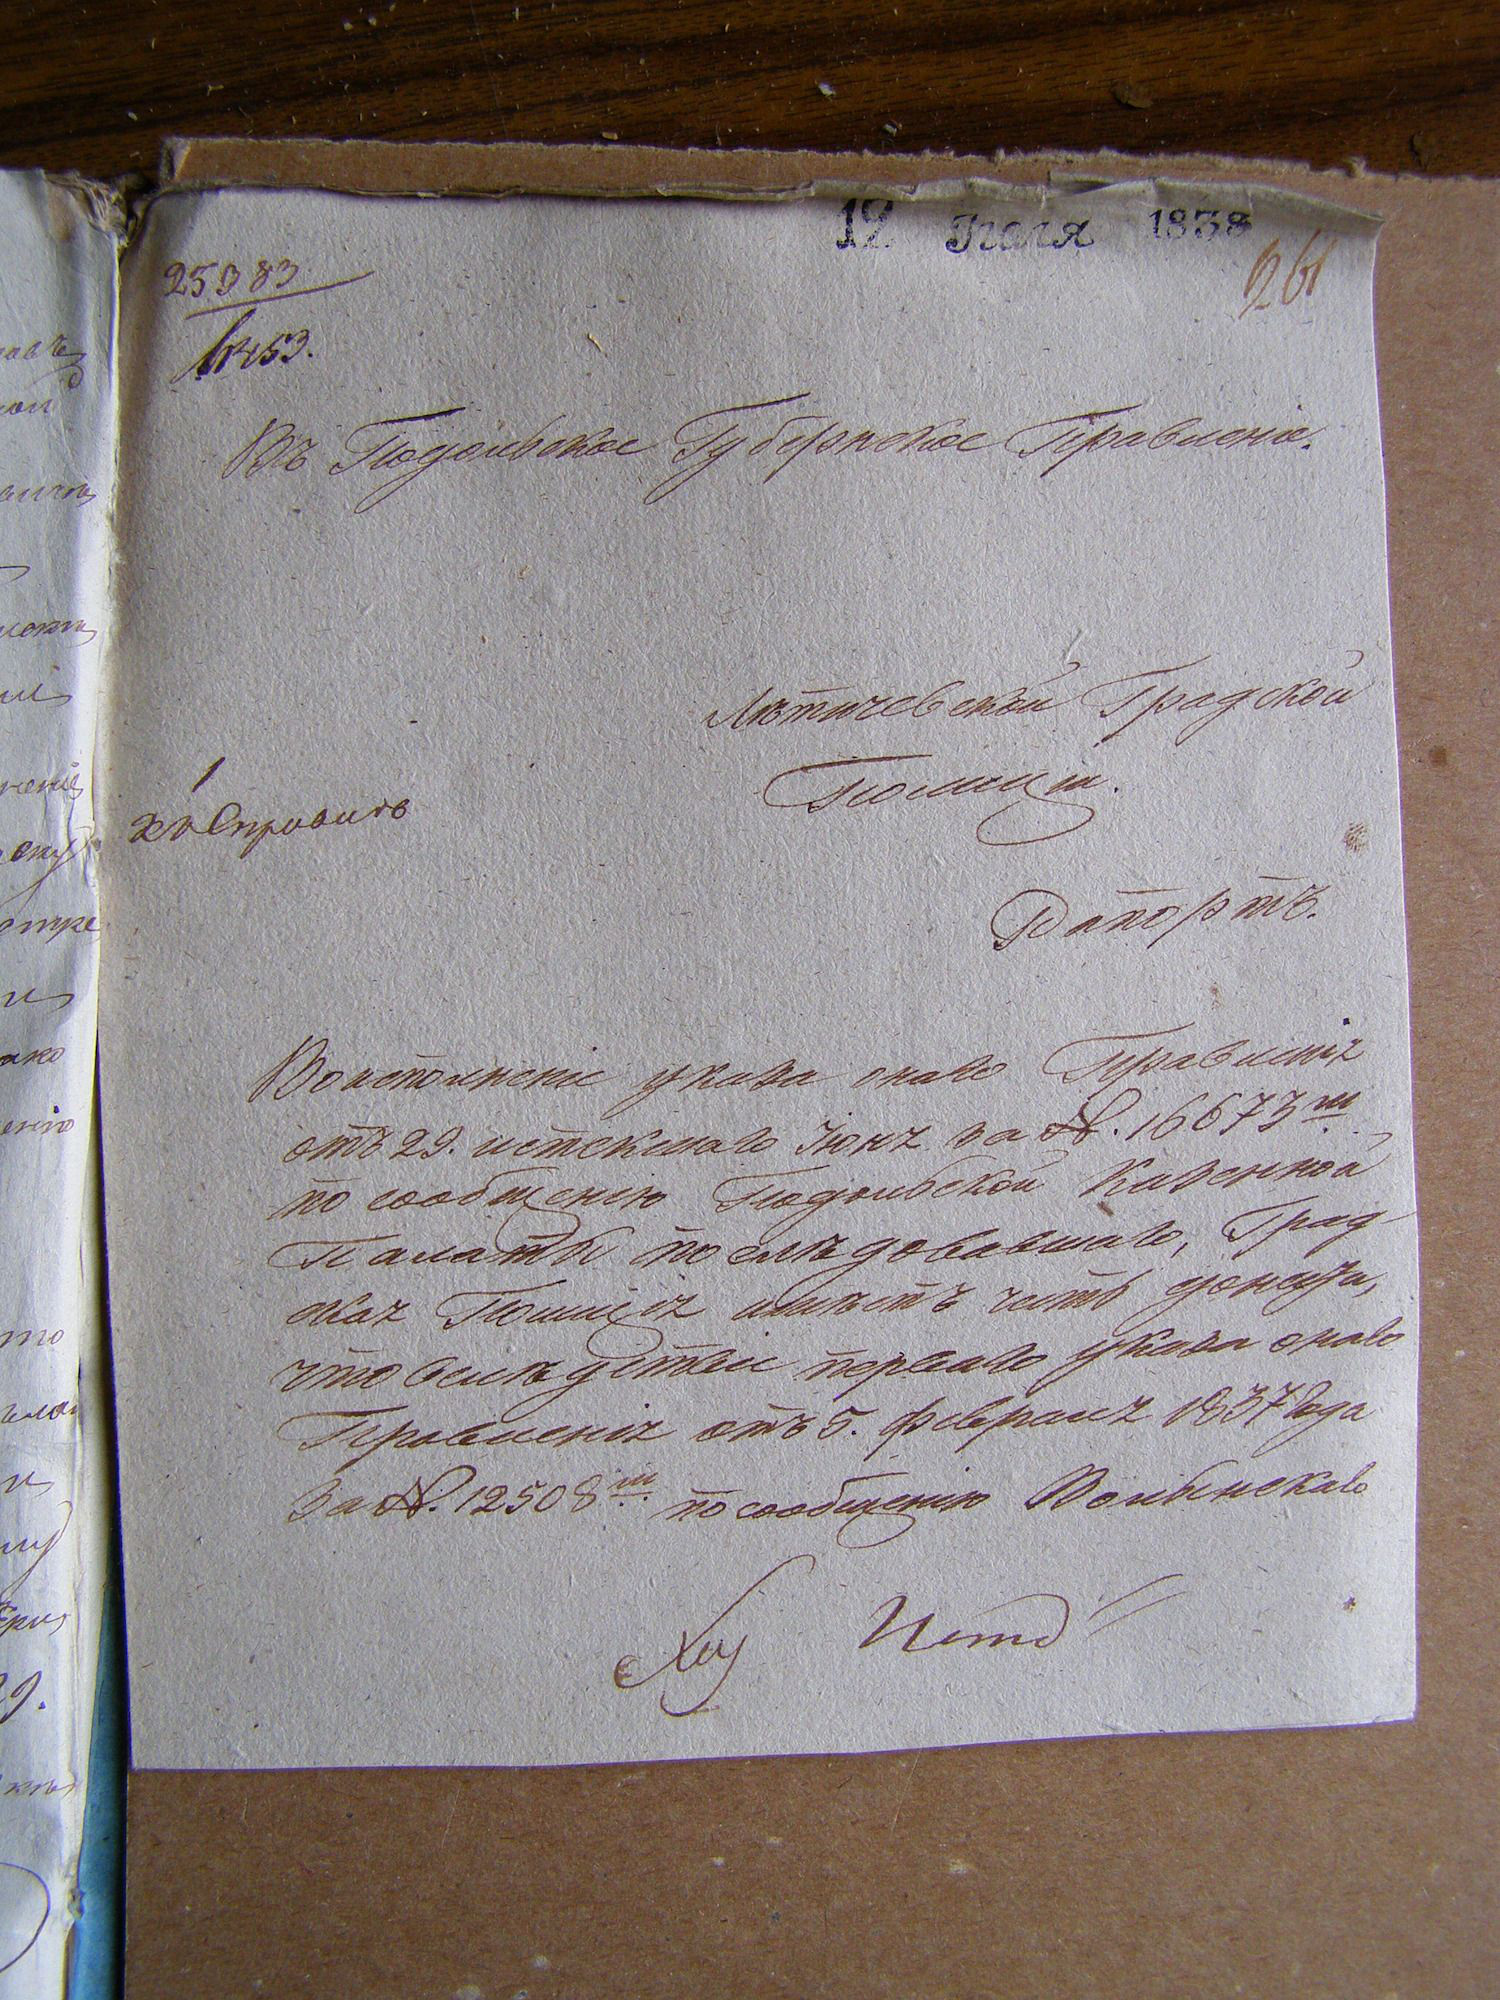 12 Июля 1838
261
25983
Въ Подольское Губернское Правленіе.
Лѣтичевской Градской
Полиции.
Къ Справкѣ
Рапортъ.
Воисполненіе указа онаго Правленія
отъ 29. истекшаго Іюня за №. 16673м
по сообщенію Подольской Казенной
Палаты последовавшаго, Град
ская Полиція имѣетъ честь донести,
что вследствіе перваго указа онаго
Правленія отъ 5. февраля 1837 года
за №. 12508м. по сообщенію Волынскаго